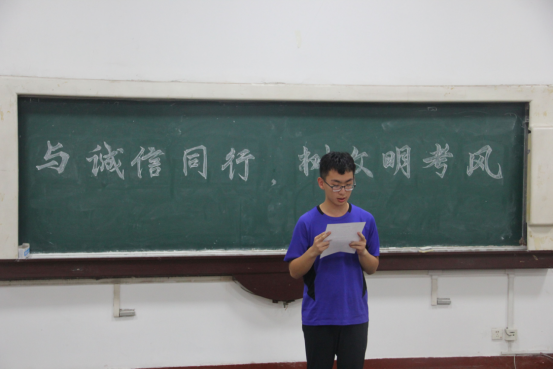 与诚信同行，树文明考风